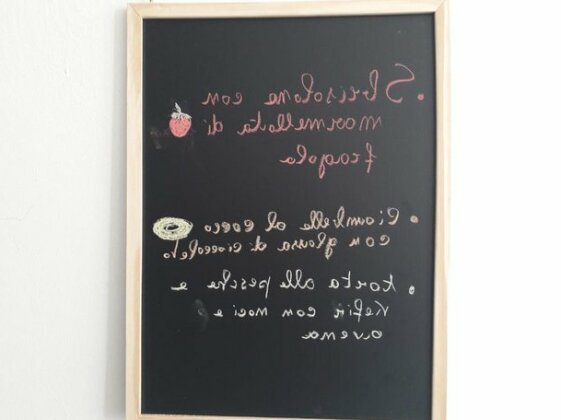 • Sbrisolona con
marmellata di
fragola
• Ciambelle al cocco
con glassa di cioccolato
• torta alle pesche e
Kefir con noci e
avena